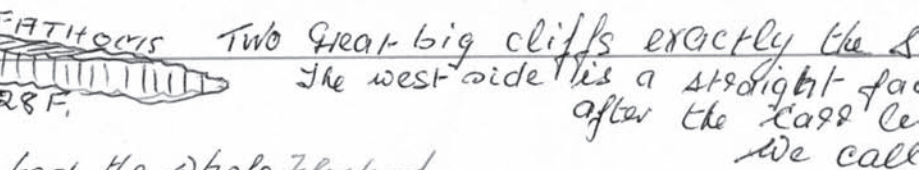 FATHOMS Two Great big cliffs exactly the
The west side is a straight
28 F. after the
We call
the whole